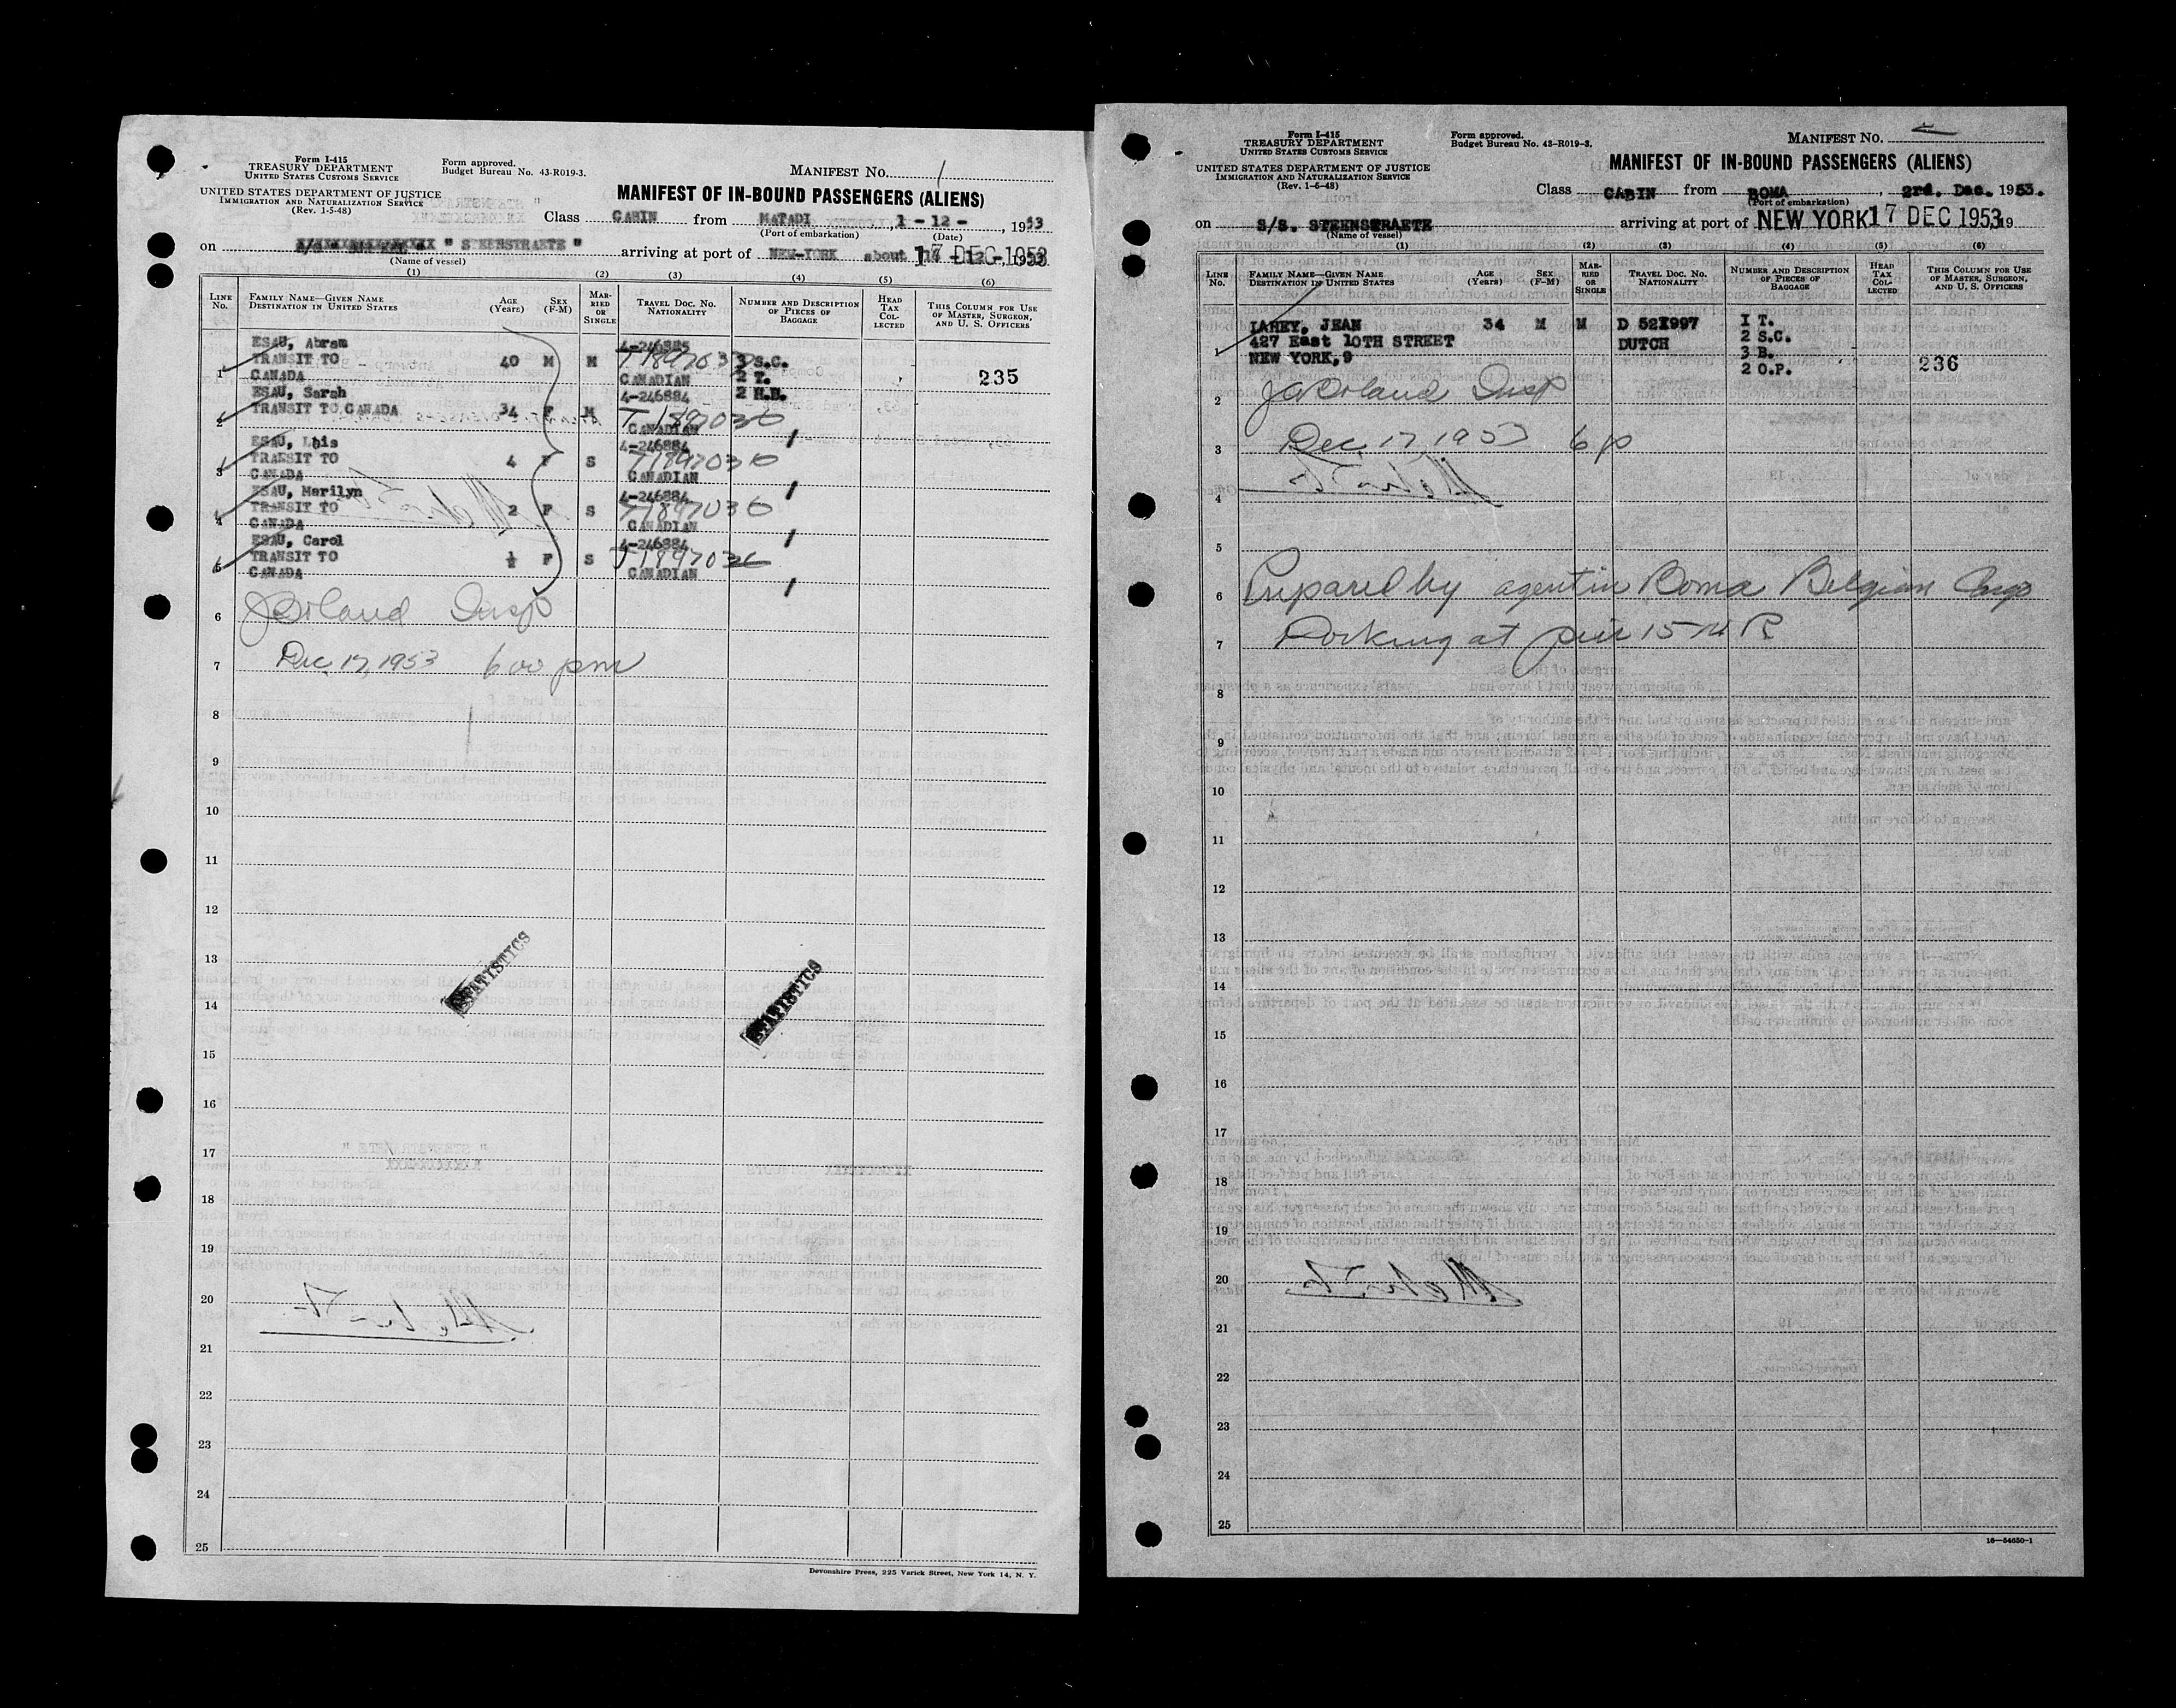 Form I-415
TREASURY DEPARTMENT
UNITED STATES CUSTOMS SERVICE
UNITED STATES DEPARTMENT OF JUSTICE
IMMIGRATION AND NATURALIZATION SERVICE
(Rev. 1-5-48)
Form approved.
Budget Bureau No. 43-R019-3.
MANIFEST No. 1
MANIFEST OF IN-BOUND PASSENGERS (ALIENS)
Class CABIN from MATADI, 1-12-, 1953
(Port of embarkation) (Date)
on " STEENSTRAETE " arriving at port of NEW-YORK about 17 DEC 1953
(Name of vessel)
(1) (2) (3) (4) (5) (6)
LINE No. FAMILY NAME—GIVEN NAME DESTINATION IN UNITED STATES AGE (Years) SEX (F-M) MARRIED OR SINGLE TRAVEL DOC. NO. NATIONALITY NUMBER AND DESCRIPTION OF PIECES OF BAGGAGE HEAD TAX COLLECTED THIS COLUMN FOR USE OF MASTER, SURGEON, AND U. S. OFFICERS
1 ESAU, Abram TRANSIT TO CANADA 40 M M 4-246885 CANADIAN 3 S.C. 2 T. 2 H.B. 235
2 ESAU, Sarah TRANSIT TO CANADA 34 F M 4-246884 T1897030 CANADIAN
3 ESAU, Lois TRANSIT TO CANADA 4 F S 4-246884 T1897030 CANADIAN
4 ESAU, Marilyn TRANSIT TO CANADA 2 F S 4-246884 T1897030 CANADIAN
5 ESAU, Carol TRANSIT TO CANADA ½ F S 4-246884 T1897030 CANADIAN
6 Insp
7 Dec. 17, 1953 6 00 pm
8
9
10
11
12
13
STATISTICS
STATISTICS
14
15
16
17
18
19
20
21
22
23
24
25
Devonshire Press, 225 Varick Street, New York 14, N. Y.
Form I-415
TREASURY DEPARTMENT
UNITED STATES CUSTOMS SERVICE
UNITED STATES DEPARTMENT OF JUSTICE
IMMIGRATION AND NATURALIZATION SERVICE
(Rev. 1-5-48)
Form approved.
Budget Bureau No. 43-R019-3.
MANIFEST No.
MANIFEST OF IN-BOUND PASSENGERS (ALIENS)
Class CABIN from BOMA, 2rd. Dec. 1953.
(Port of embarkation)
on S/S. STEENSTRAETE arriving at port of NEW YORK 17 DEC 1953, 19
(Name of vessel)
(1) (2) (3) (4) (5) (6)
LINE No. FAMILY NAME—GIVEN NAME DESTINATION IN UNITED STATES AGE (Years) SEX (F-M) MARRIED OR SINGLE TRAVEL DOC. NO. NATIONALITY NUMBER AND DESCRIPTION OF PIECES OF BAGGAGE HEAD TAX COLLECTED THIS COLUMN FOR USE OF MASTER, SURGEON, AND U. S. OFFICERS
1 JEAN 34 M M D 521997 1 T.
427 East 10TH STREET DUTCH 2 S.C.
NEW YORK, 9 3 B. 236
2 O.P.
2 Insp
3 Dec. 17 1953 6 p
4
5
6 Prepared by agent in Boma Belgian Congo
7 Docking at pier 15 N R
8
9
10
11
12
13
14
15
16
17
18
19
20
21
22
23
24
25
16—54650-1